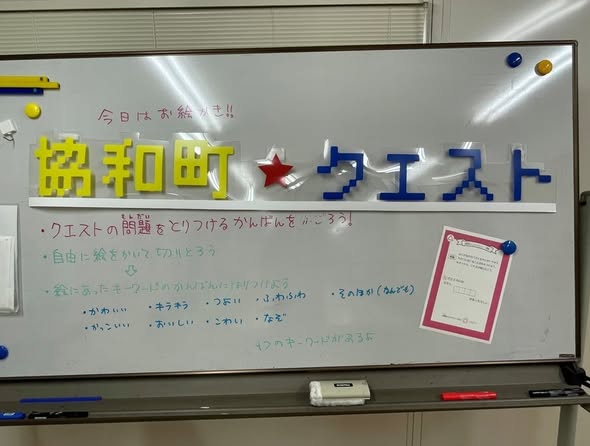 今日はお絵かき!!
協和町★クエスト
・クエストの問題をとりつけるかんばんを
もんだい
・自由に絵をかいて切りとろう
⇩
・絵にあったキーワードのかんばんにはりつけよう
・かわいい ・キラキラ ・つよい ・ふわふわ ・そのほか(なんでも)
・かっこいい ・おいしい ・こわい ・なぞ
のキーワードがあるよ